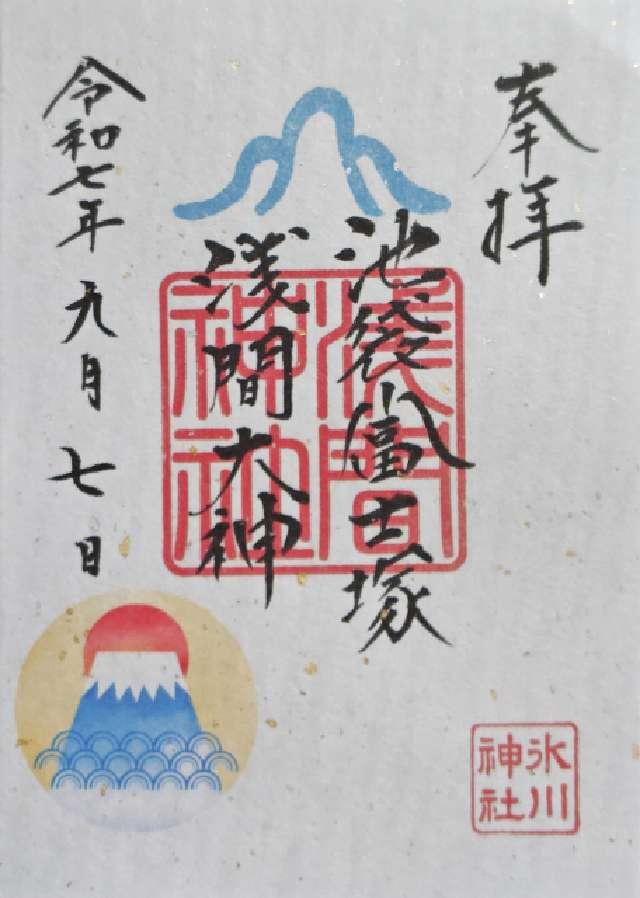 奉拝
池袋富士塚
浅間大神
令和七年九月七日
浅間
神社
氷川
神社